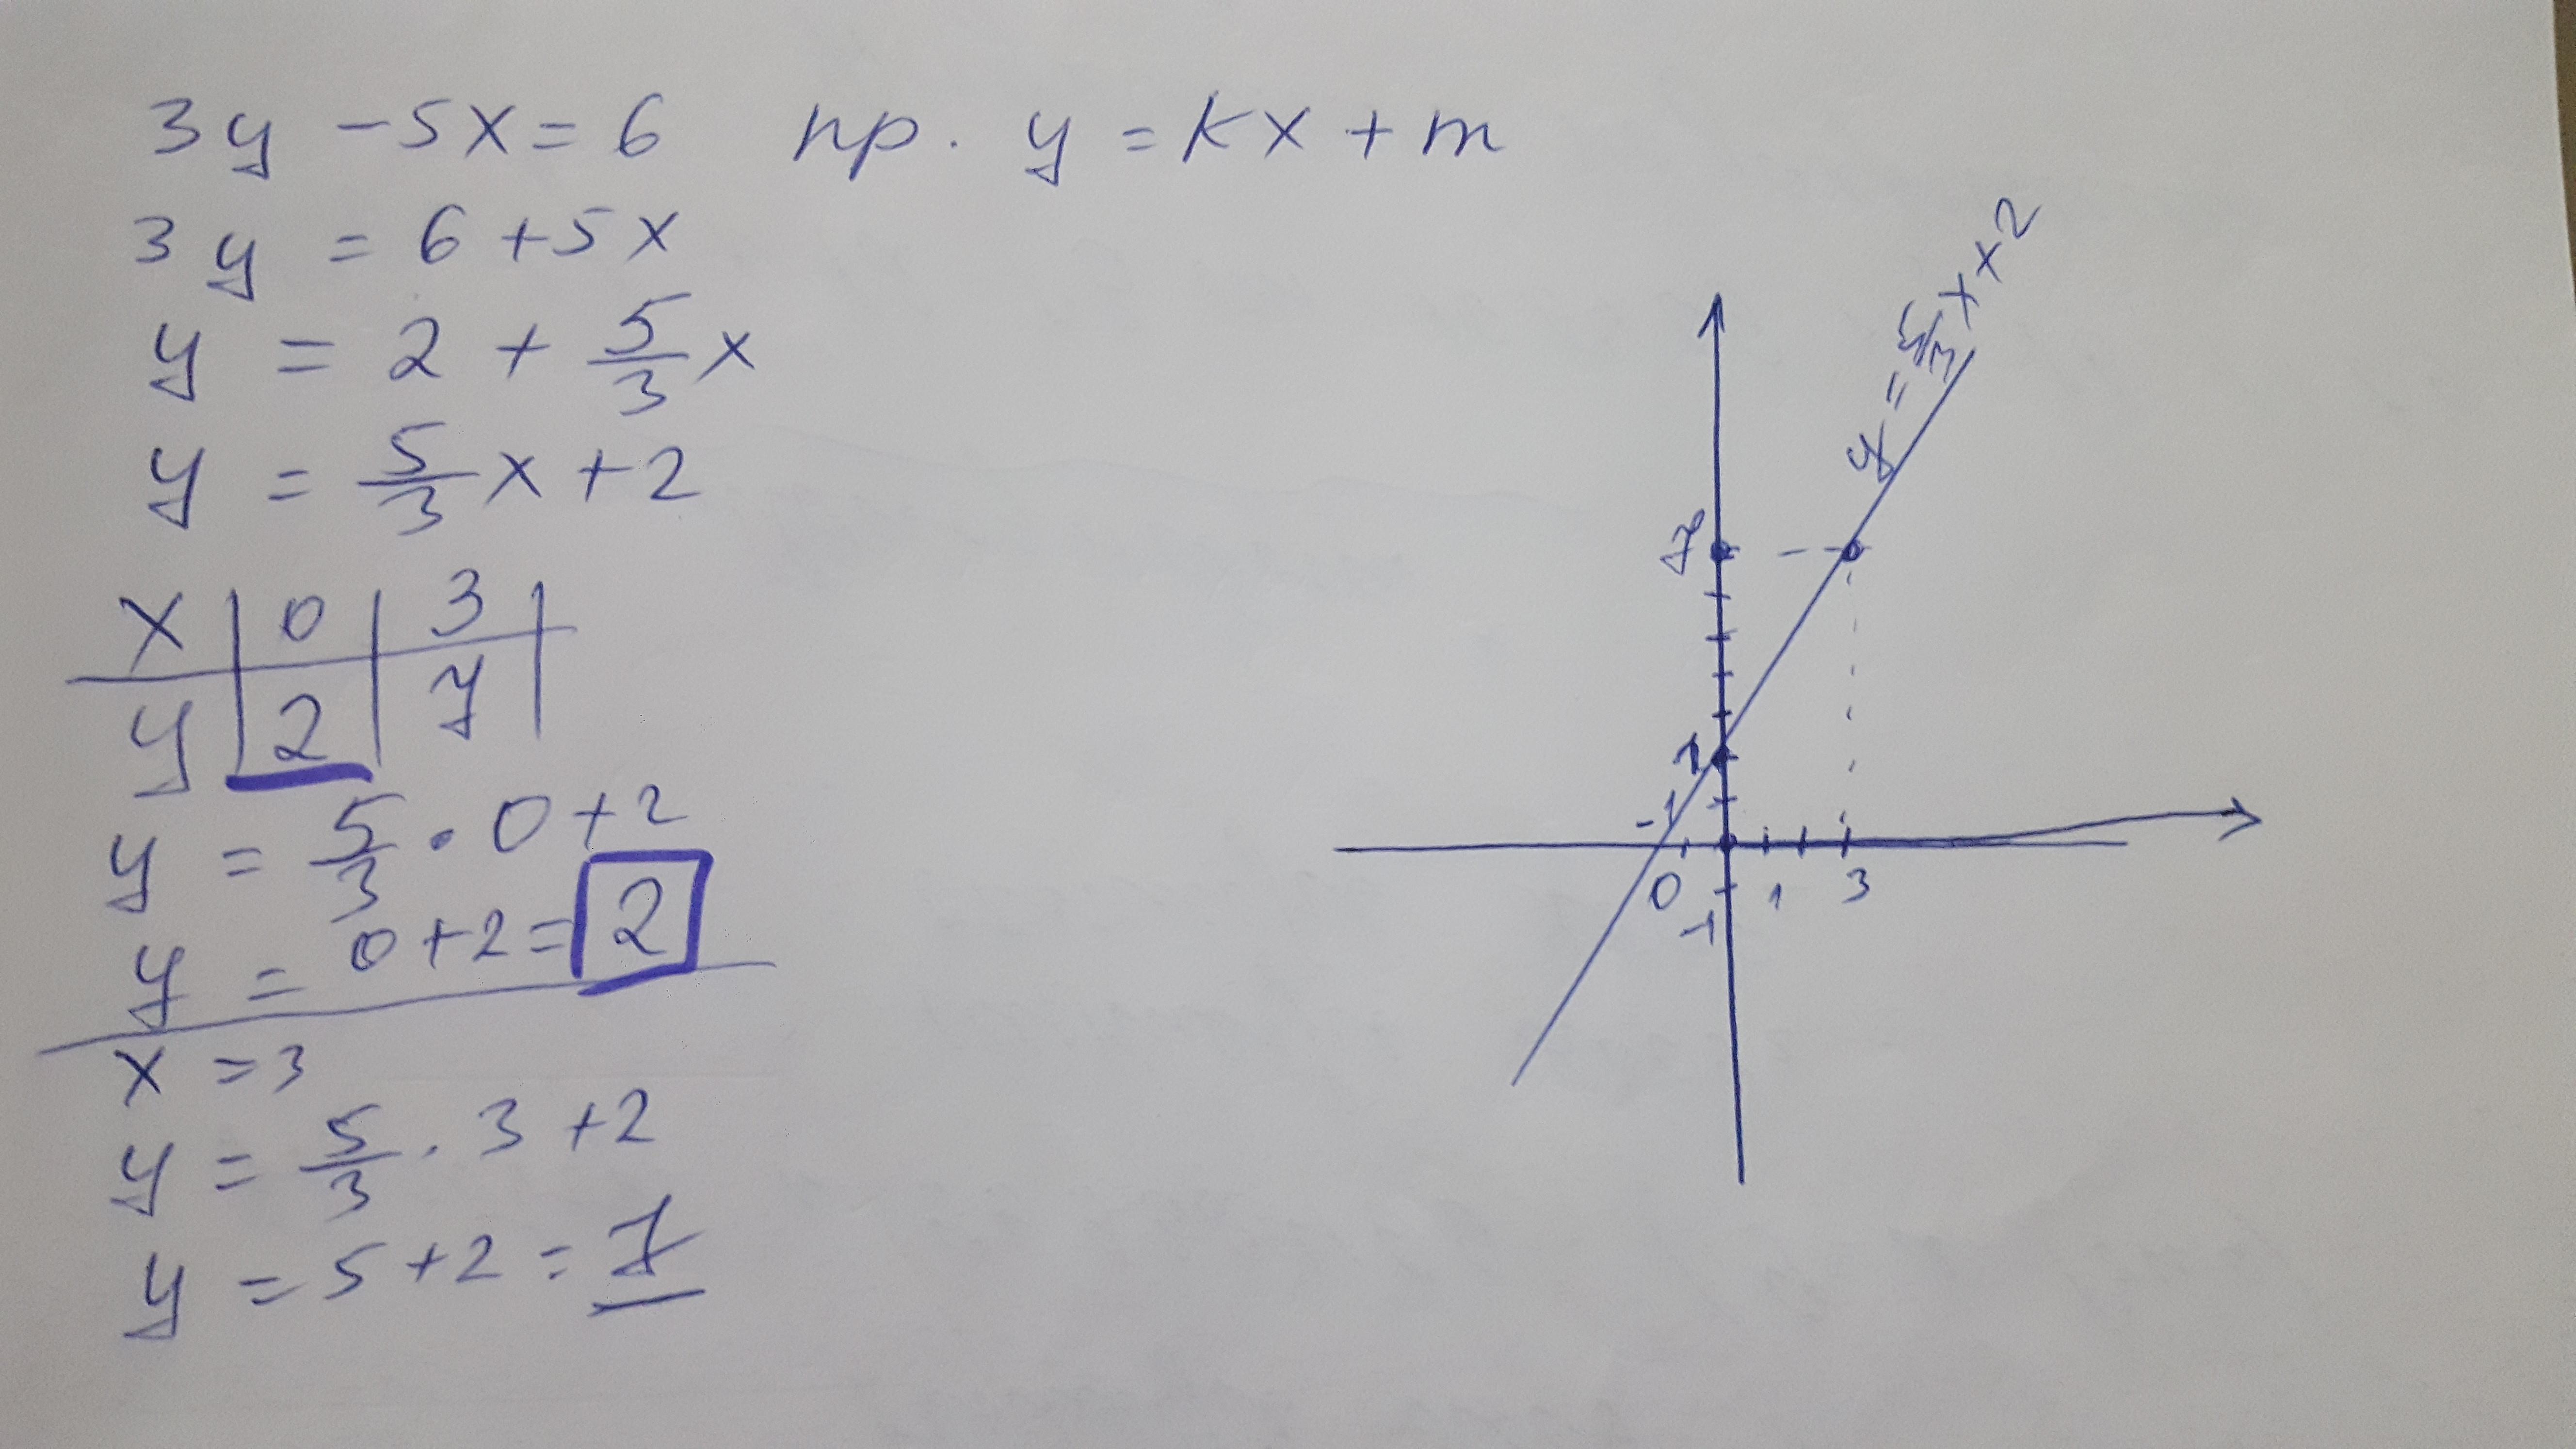 3y - 5x = 6 пр. y = kx + m
3y = 6 + 5x
y = 2 + 5/3 x
y = 5/3 x + 2
x | 0 | 3
y | 2 | 7
y = 5/3 · 0 + 2
y = 0 + 2 = 2
x = 3
y = 5/3 · 3 + 2
y = 5 + 2 = 7
y = 5/3 x + 2
7
1
-1
0 1 3
-1